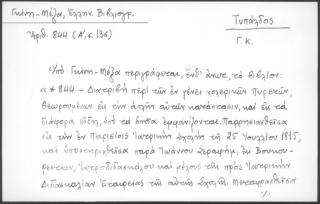 Γκίνη-Μέξα, Ἑλλην. Βιβλιογρ.
Ἀριθ. 844 (Α', σ. 136)
Τυπάλδος
Γ. Κ.
Ὑπὸ Γκίνη-Μέξα περιγράφεται, ἐνθ' ἄνωτ., τὸ βιβλίον:
α * 844.- Διατριβὴ περὶ τῶν ἐν γένει χολερικῶν Πυρετῶν,
Θεωρουμένων εἰς τὴν ἁπλῆν αὐτῶν κατάστασιν, καὶ εἰς τὰ
διάφορα εἴδη, ὑπὸ τὰ ὁποῖα ἐμφανίζονται. Παρρησιασθεῖσα
εἰς τὴν ἐν Παρισίοις Ἰατρικὴν Σχολὴν τῇ 25 Ἰουλίου 1815,
καὶ ὑποστηριχθεῖσα παρὰ Ἰωάννου Σεραφήμ, ἐκ Βουκου-
ρεστίων, Ἰατροδιδασκάλου καὶ μέλους τῆς πρὸς Ἰατρικὴν
Διδασκαλίαν Ἑταιρείας τῆς αὐτῆς Σχολῆς. Μεταφρασθεῖσα
./.